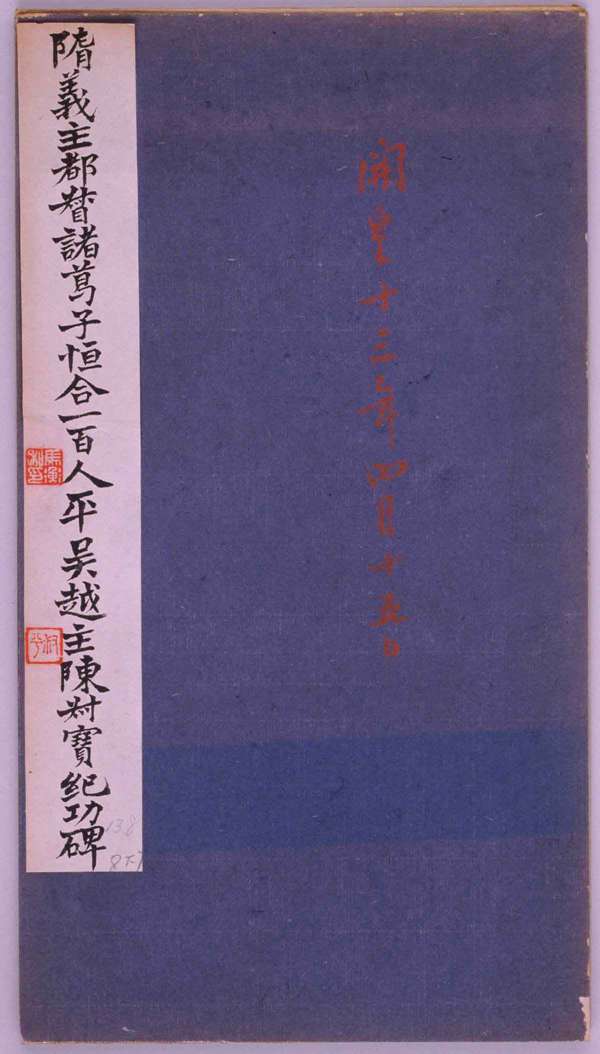 開皇十三年四月十五日
隋義主都督諸葛子恒合一百人平吳越主陳尗寶紀功碑
叔平
138